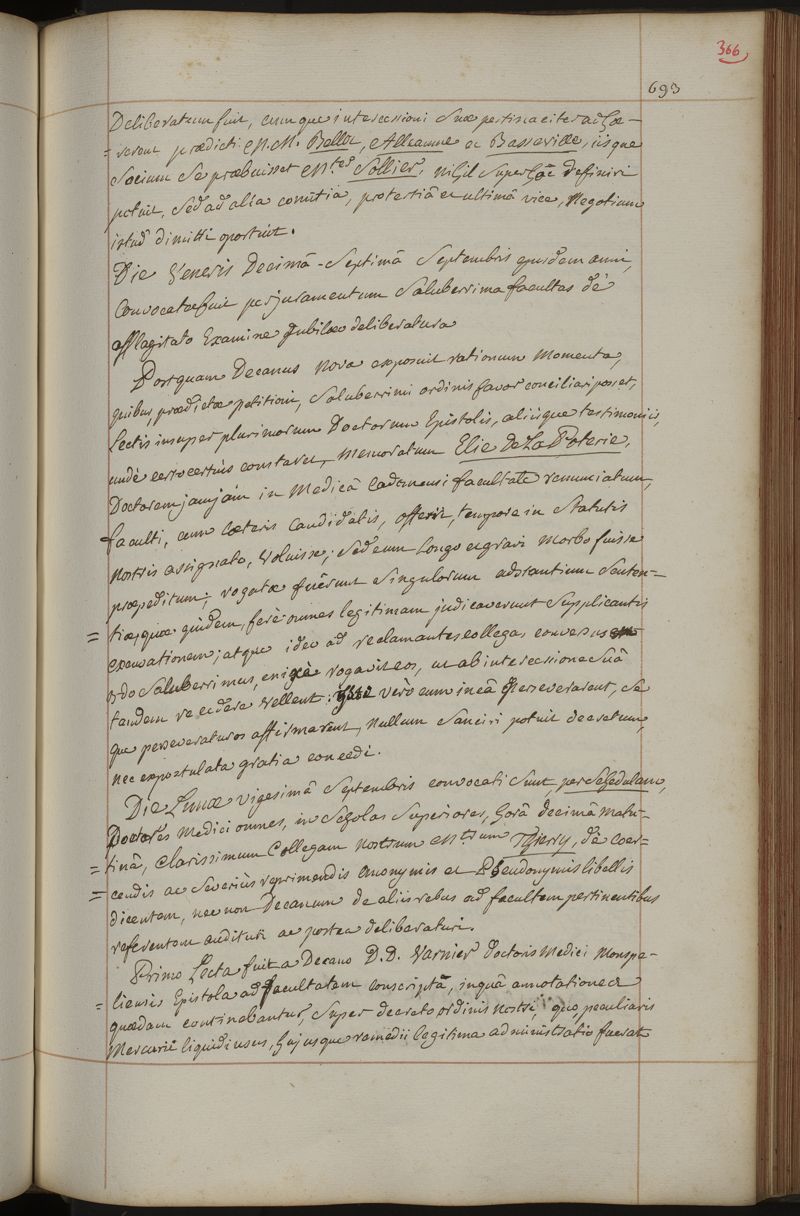 366
693
Deliberatum fuit, cumque intercessioni suæ pertinaciter adhæ-
= rerent prædicti M.M. Belloc, Alleaume ac Basseville, iisque
Socium se præbuisset M.ter Sollier, nihil super hâc definiri
potuit, sed ad alia comitia, pro tertiâ et ultimâ vice, Negotium
istud dimitti oportuit.
Die Veneris Decimâ-Septimâ Septembris ejusdem anni,
Convocata fuit per juramentum Saluberrima facultas de
efflagitato Examine Jubilæo deliberatura
Postquam Decanus Nova exposuit rationum Momenta,
quibus, prædictæ petitioni, Saluberrimi ordinis favor conciliari posset,
Lectis insuper plurimorum Doctorum Epistolis, aliisque testimoniis,
undè certo certius constaret, Memoratum Elie De La Poterie,
Doctorem jamjam in Medicâ Cadomensi facultate renunciatum,
facultati, cum cæteris Candidatis, offerri, tempore in Statutis
nostris assignato, Voluisse, sed eum Longo et gravi Morbo fuisse
præpeditum; rogatæ fuerunt singulorum adstantium Senten-
= tiæ, quæ quidem, ferè omnes legitimam judicaverunt Supplicantis
excusationem; atque ideo ad reclamantes collegas conversus
ordo Saluberrimus, enixè rogavit eos, ut ab intercessione suâ
tandem recedere vellent; verò cum in eâ perseverarent, se
que perseveraturos affirmarent, Nullum Sanciri potuit decretum,
nec expostulata gratia concedi.
Die Lunæ vigesimâ Septembris convocati sunt, per Schedulam,
Doctores Medici omnes, in Scholas Superiores, horâ decimâ Matu-
= tinâ, Clarissimum Collegam Nostrum M.trum Thierry, dè coer-
= cendis ac severiùs reprimendis Anonymis et Pseudonymis libellis
dicentem, nec non Decanum de aliis rebus ad facultatem pertinentibus
referentem audituri ac postea deliberaturi.
Primo Lecta fuit a Decano D.D. Varnier Doctoris Medici Monspe-
= liensis Epistola ad facultatem conscripta, in quâ annotationes
quædam continebantur, super decreto ordinis nostri, quo peculiaris
Mercurii liquidi usus, hujusque remedii legitima administratio fuerat